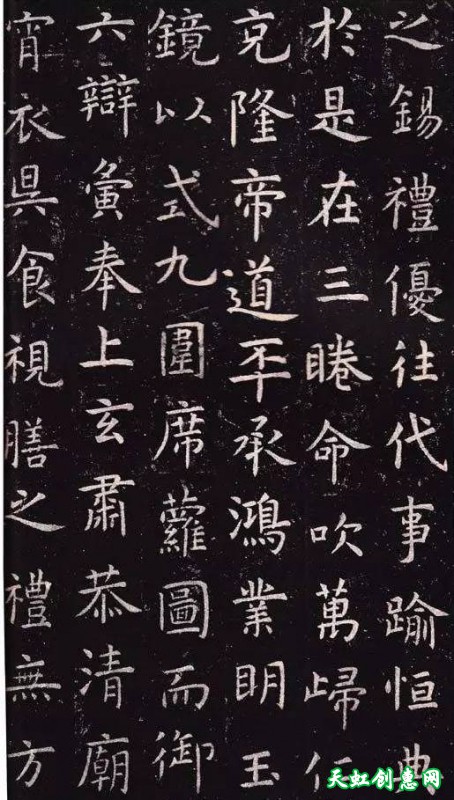 之錫禮優往代事踰恒典
於是在三睠命吹萬歸仁
克隆帝道丕承鴻業明玉
鏡以式九圍席蘿圖而御
六辯寅奉上玄肅恭清廟
宵衣昃食視膳之禮無方
天虹创惠网